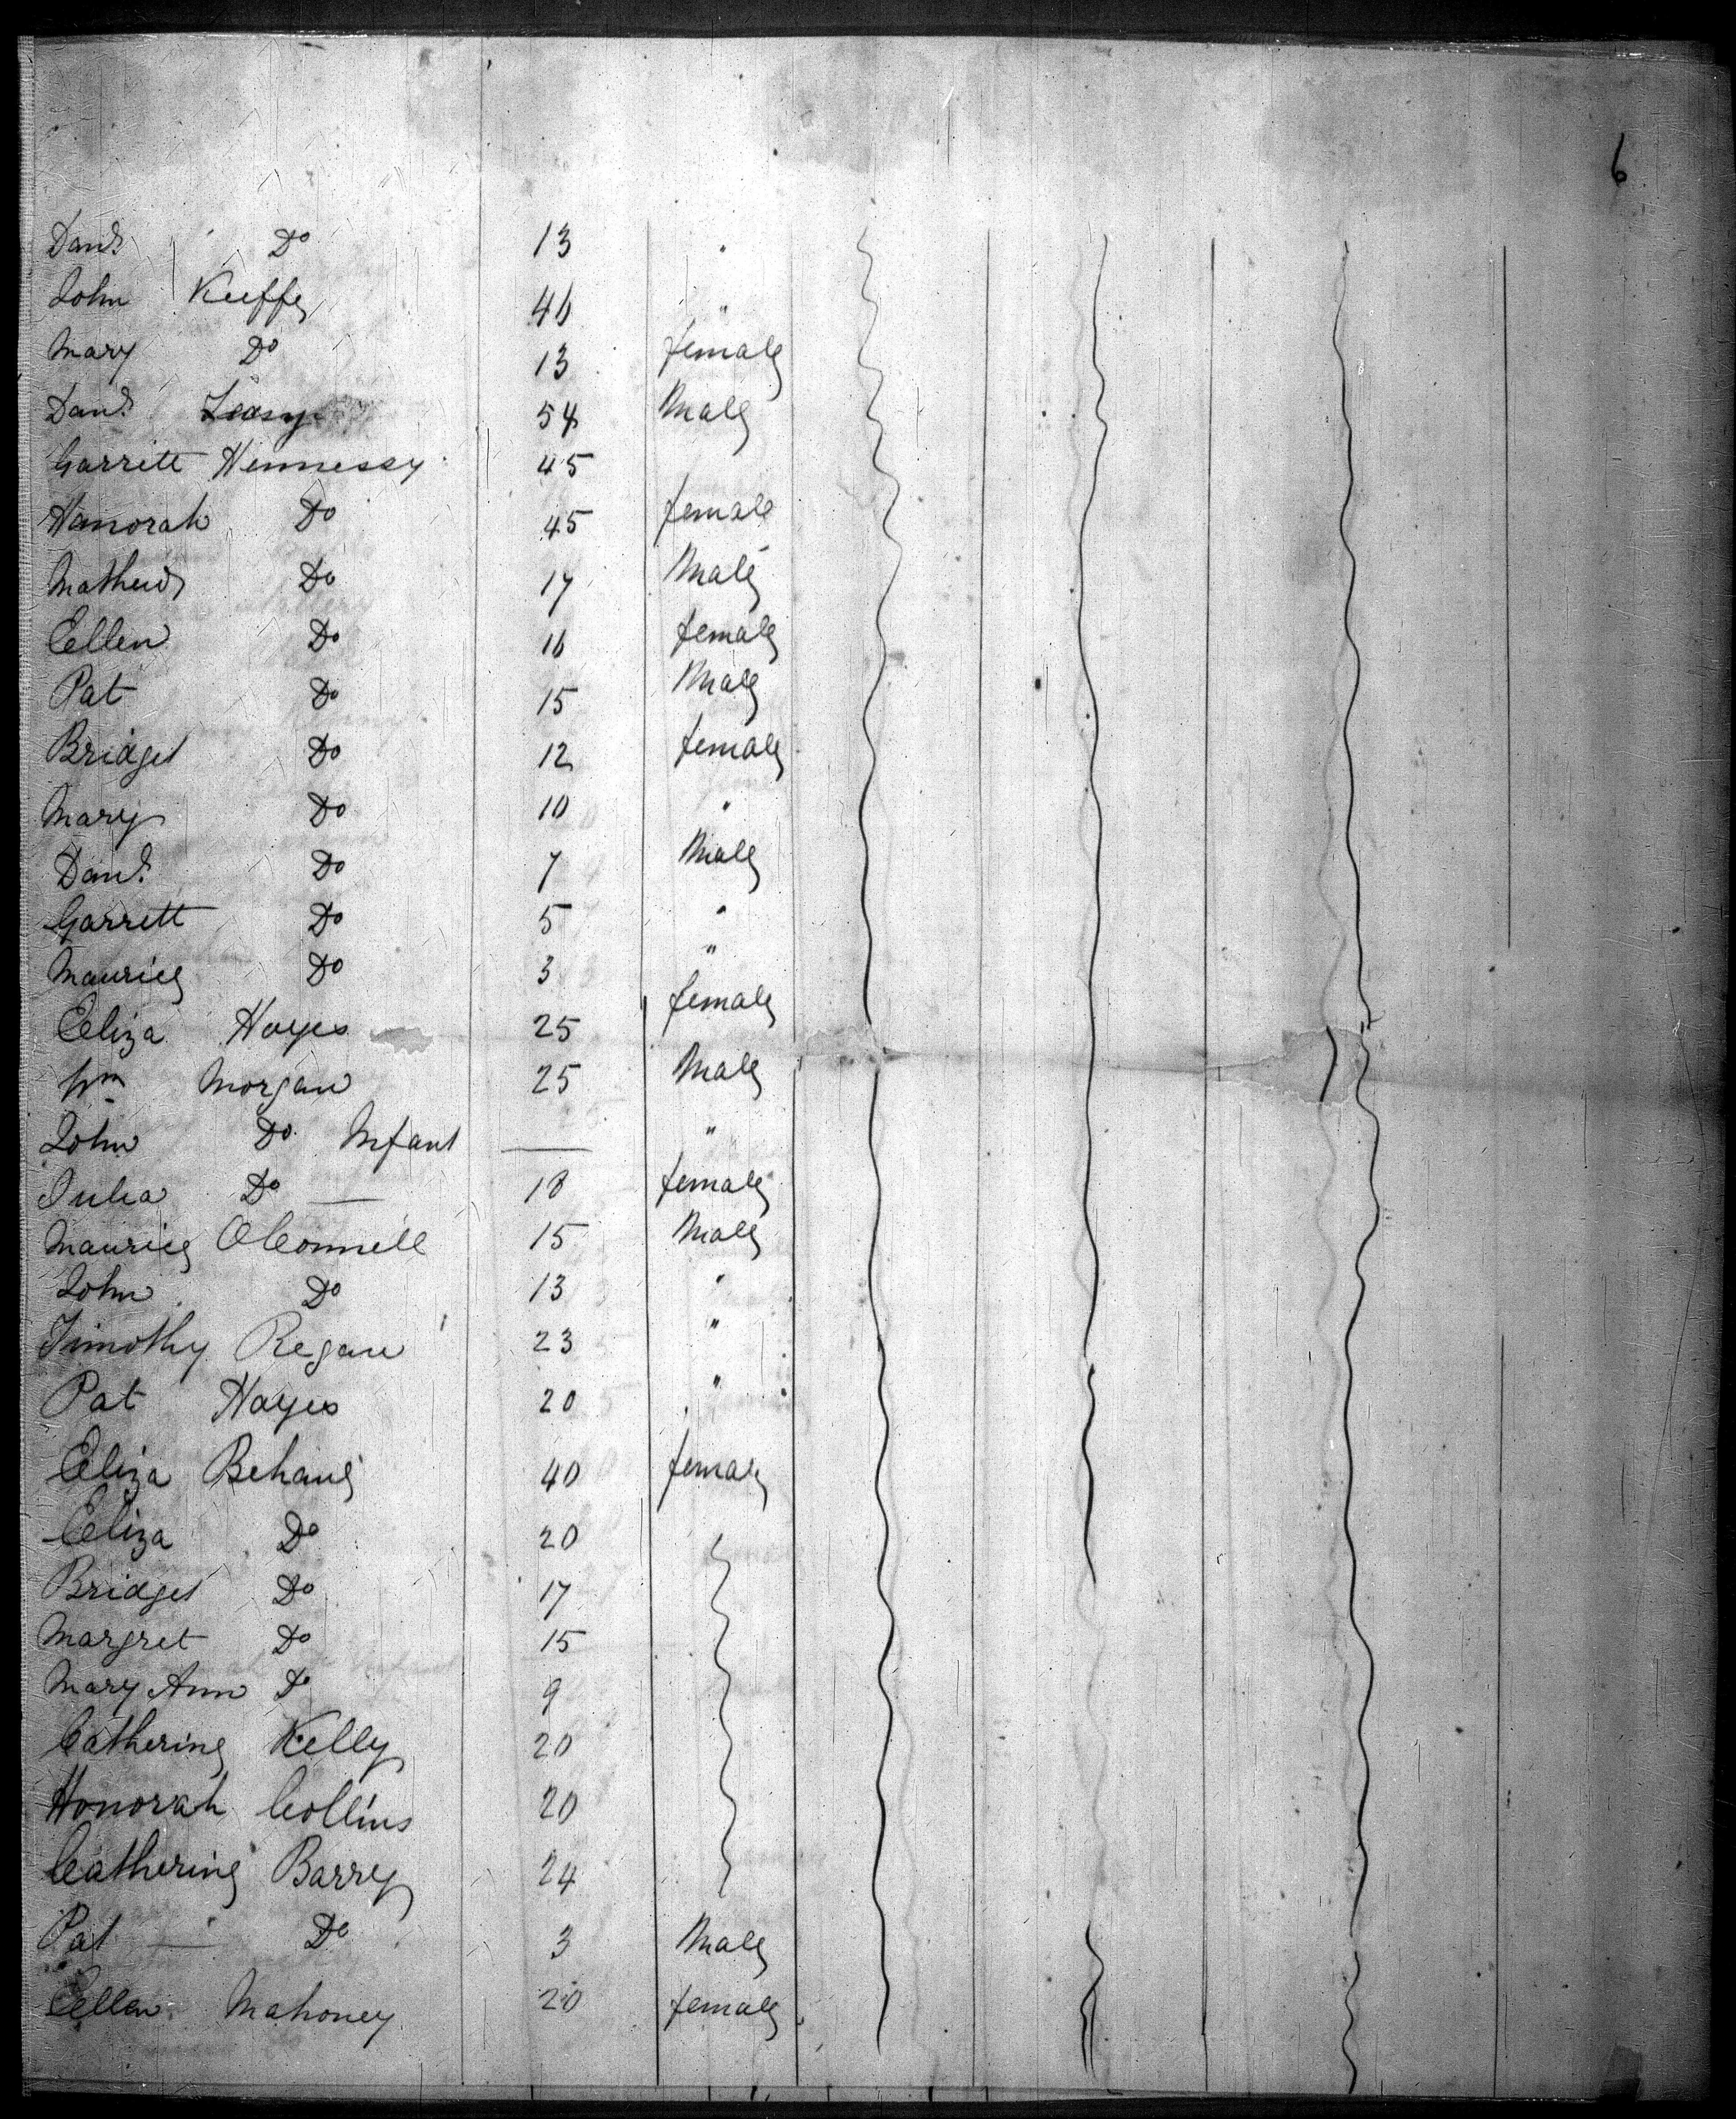 6
Danl Do 13 "
John Keeffe 46 "
Mary Do 13 female
Danl Leasy 54 Male
Garrett Hennessy 45
Hanorah Do 45 female
Mathew Do 17 Male
Eellen Do 16 female
Pat Do 15 Male
Bridget Do 12 female
Mary Do 10 "
Danl Do 7 Male
Garrett Do 5 "
Maurice Do 3 "
Eeliza Hayes 25 female
Wm Morgan 25 Male
John Do Infant — "
Julia Do — 18 female
Maurice OConnell 15 Male
John Do 13 "
Timothy Regan 23 "
Pat Hayes 20 "
Eeliza Behane 40 female
Eeliza Do 20
Bridget Do 17
Margret Do 15
Mary Ann Do 9
Catherine Kelly 20
Honorah Collins 20
Catherine Barry 24
Pat — Do 3 Male
Eellen Mahoney 20 female